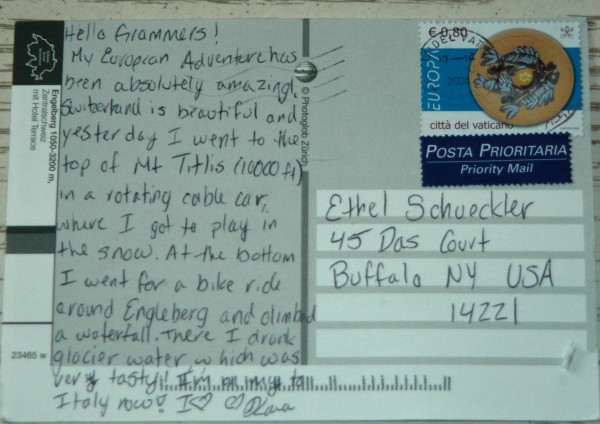 Hello Grammers!
My European Adventure has
been absolutely amazing!
Switzerland is beautiful and
yesterday I went to the
top of Mt Titlis (10000 ft)
in a rotating cable car,
where I got to play in
the snow. At the bottom
I went for a bike ride
around Engleberg and climbed
a waterfall. There I drank
glacier water which was
very tasty! I'm on my to
Italy now! I ♡ ♡
Engelberg 1050-3200 m,
Zentralschweiz
mit Hotel Terrace
23465 w
© Photoglob Zürich
€ 0,80
EUROPA
città del vaticano
POSTA PRIORITARIA
Priority Mail
Ethel Schueckler
45 Das Court
Buffalo NY USA
14221